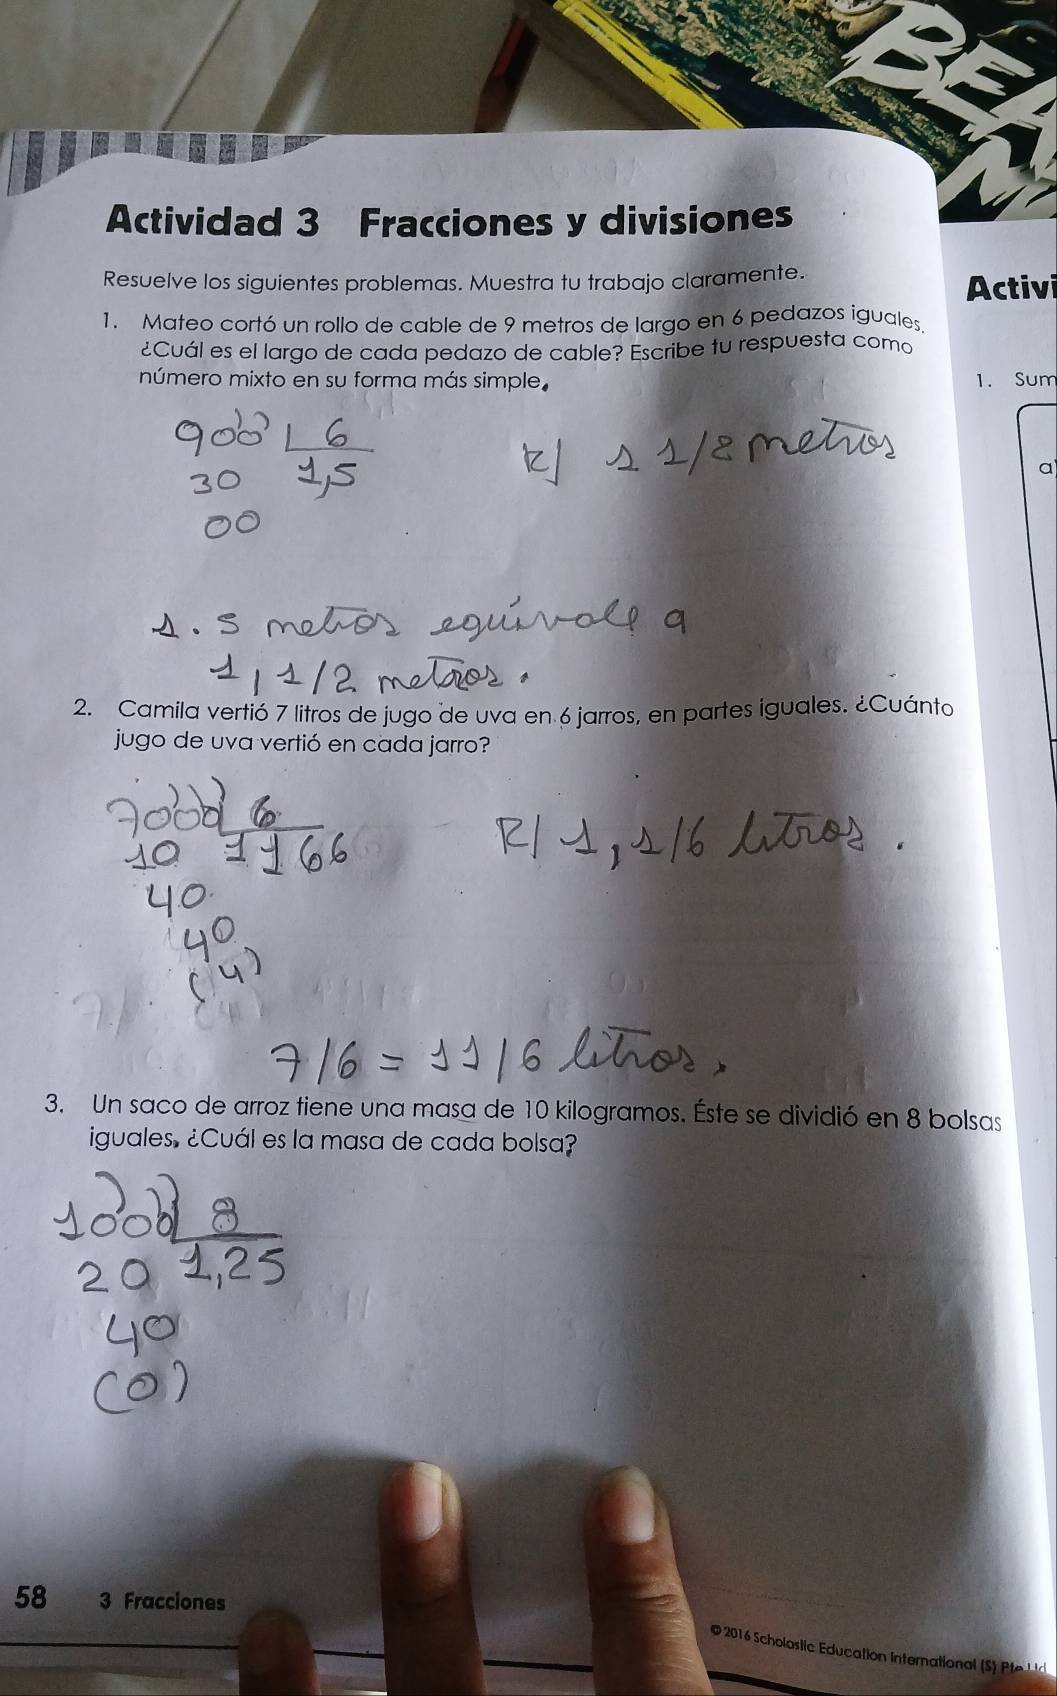 BEA
Actividad 3 Fracciones y divisiones
Resuelve los siguientes problemas. Muestra tu trabajo claramente.
1. Mateo cortó un rollo de cable de 9 metros de largo en 6 pedazos iguales.
¿Cuál es el largo de cada pedazo de cable? Escribe tu respuesta como
número mixto en su forma más simple.
900 6
30 1,5
00
R/ 1 1/2 metros
1.5 metros equivale a
1, 1/2 metros.
2. Camila vertió 7 litros de jugo de uva en 6 jarros, en partes iguales. ¿Cuánto
jugo de uva vertió en cada jarro?
7000 6
10 1166
40
40
(4)
R/ 1, 1/6 litros.
7/6 = 11/6 litros.
3. Un saco de arroz tiene una masa de 10 kilogramos. Éste se dividió en 8 bolsas
iguales. ¿Cuál es la masa de cada bolsa?
1000 8
20 1,25
40
(0)
58 3 Fracciones
© 2016 Scholastic Education International (S) Pte Ltd
Activi
1. Sum
a)